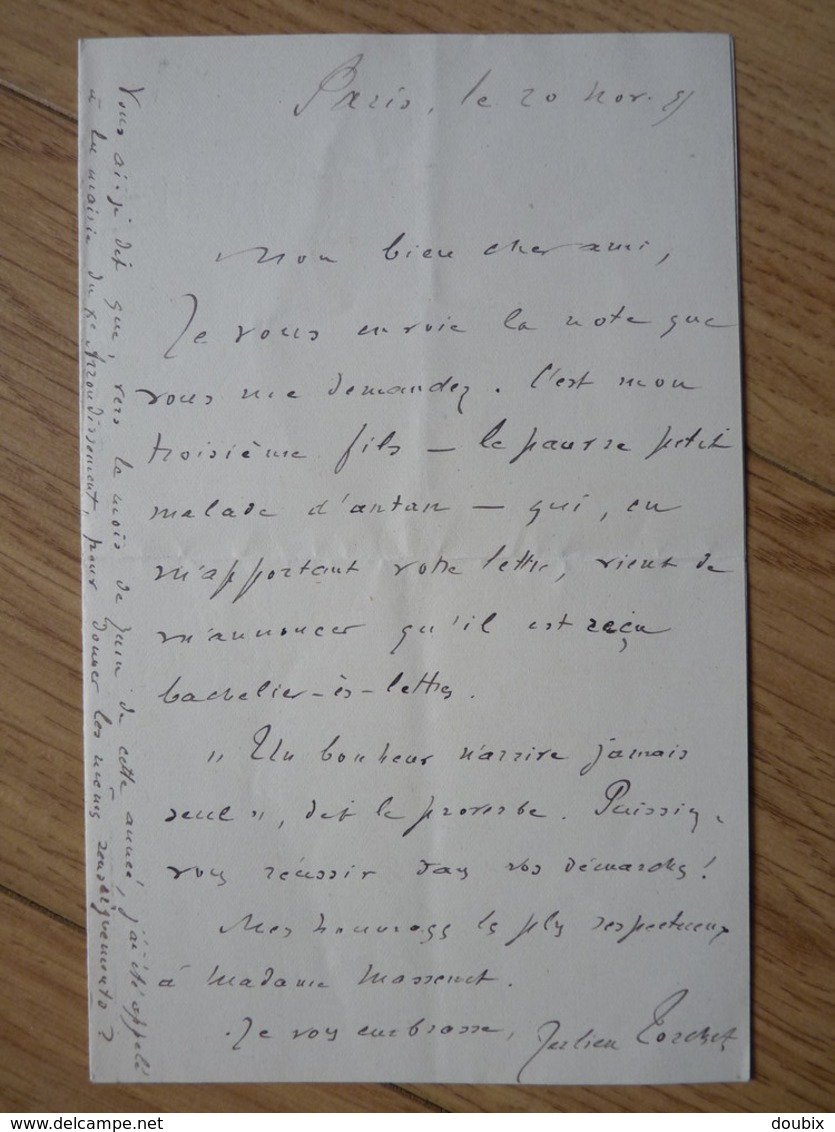 Paris, le 20 Nov.
Mon bien cher ami,
Je vous envoie la note que
vous me demandez. C'est mon
troisième fils — le pauvre petit
malade d'antan — qui, en
m'apportant votre lettre, vient de
m'annoncer qu'il est reçu
bachelier-ès-lettres.
"Un bonheur n'arrive jamais
seul", dit le proverbe. Puissiez-
vous réussir dans vos démarches!
Mes hommages les plus respectueux
à Madame Massenet.
Je vous embrasse, Julien Torchet
Vous ai-je dit que, vers le mois de Juin de cette année, j'ai été appelé
à la mairie du Xe Arrondissement, pour donner les mêmes renseignements?
delcampe.net
doubix